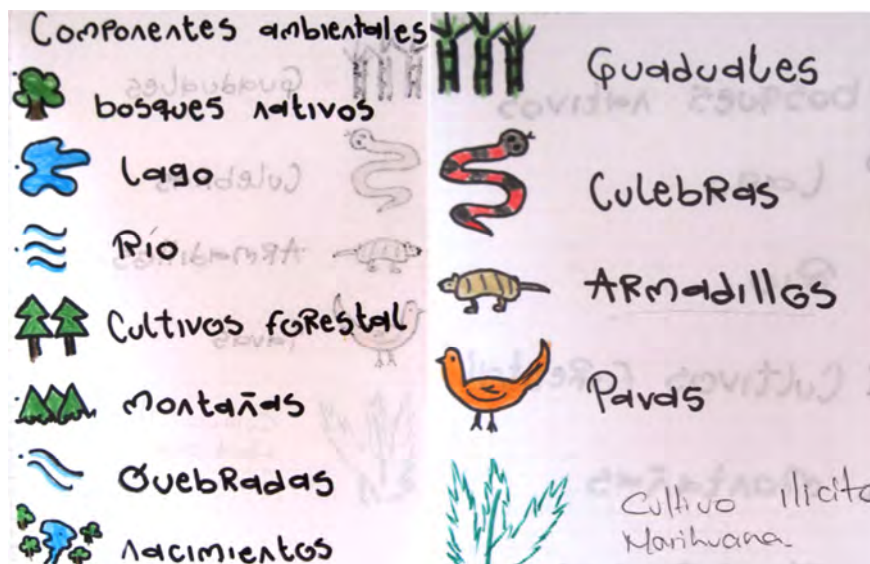 Componentes ambientales
bosques nativos
Lago
Río
Cultivos foRestal
montañas
QuebRadas
nacimientos
Guaduales
CulebRas
ARmadillos
Pavas
Cultivo ilicito
Marihuana